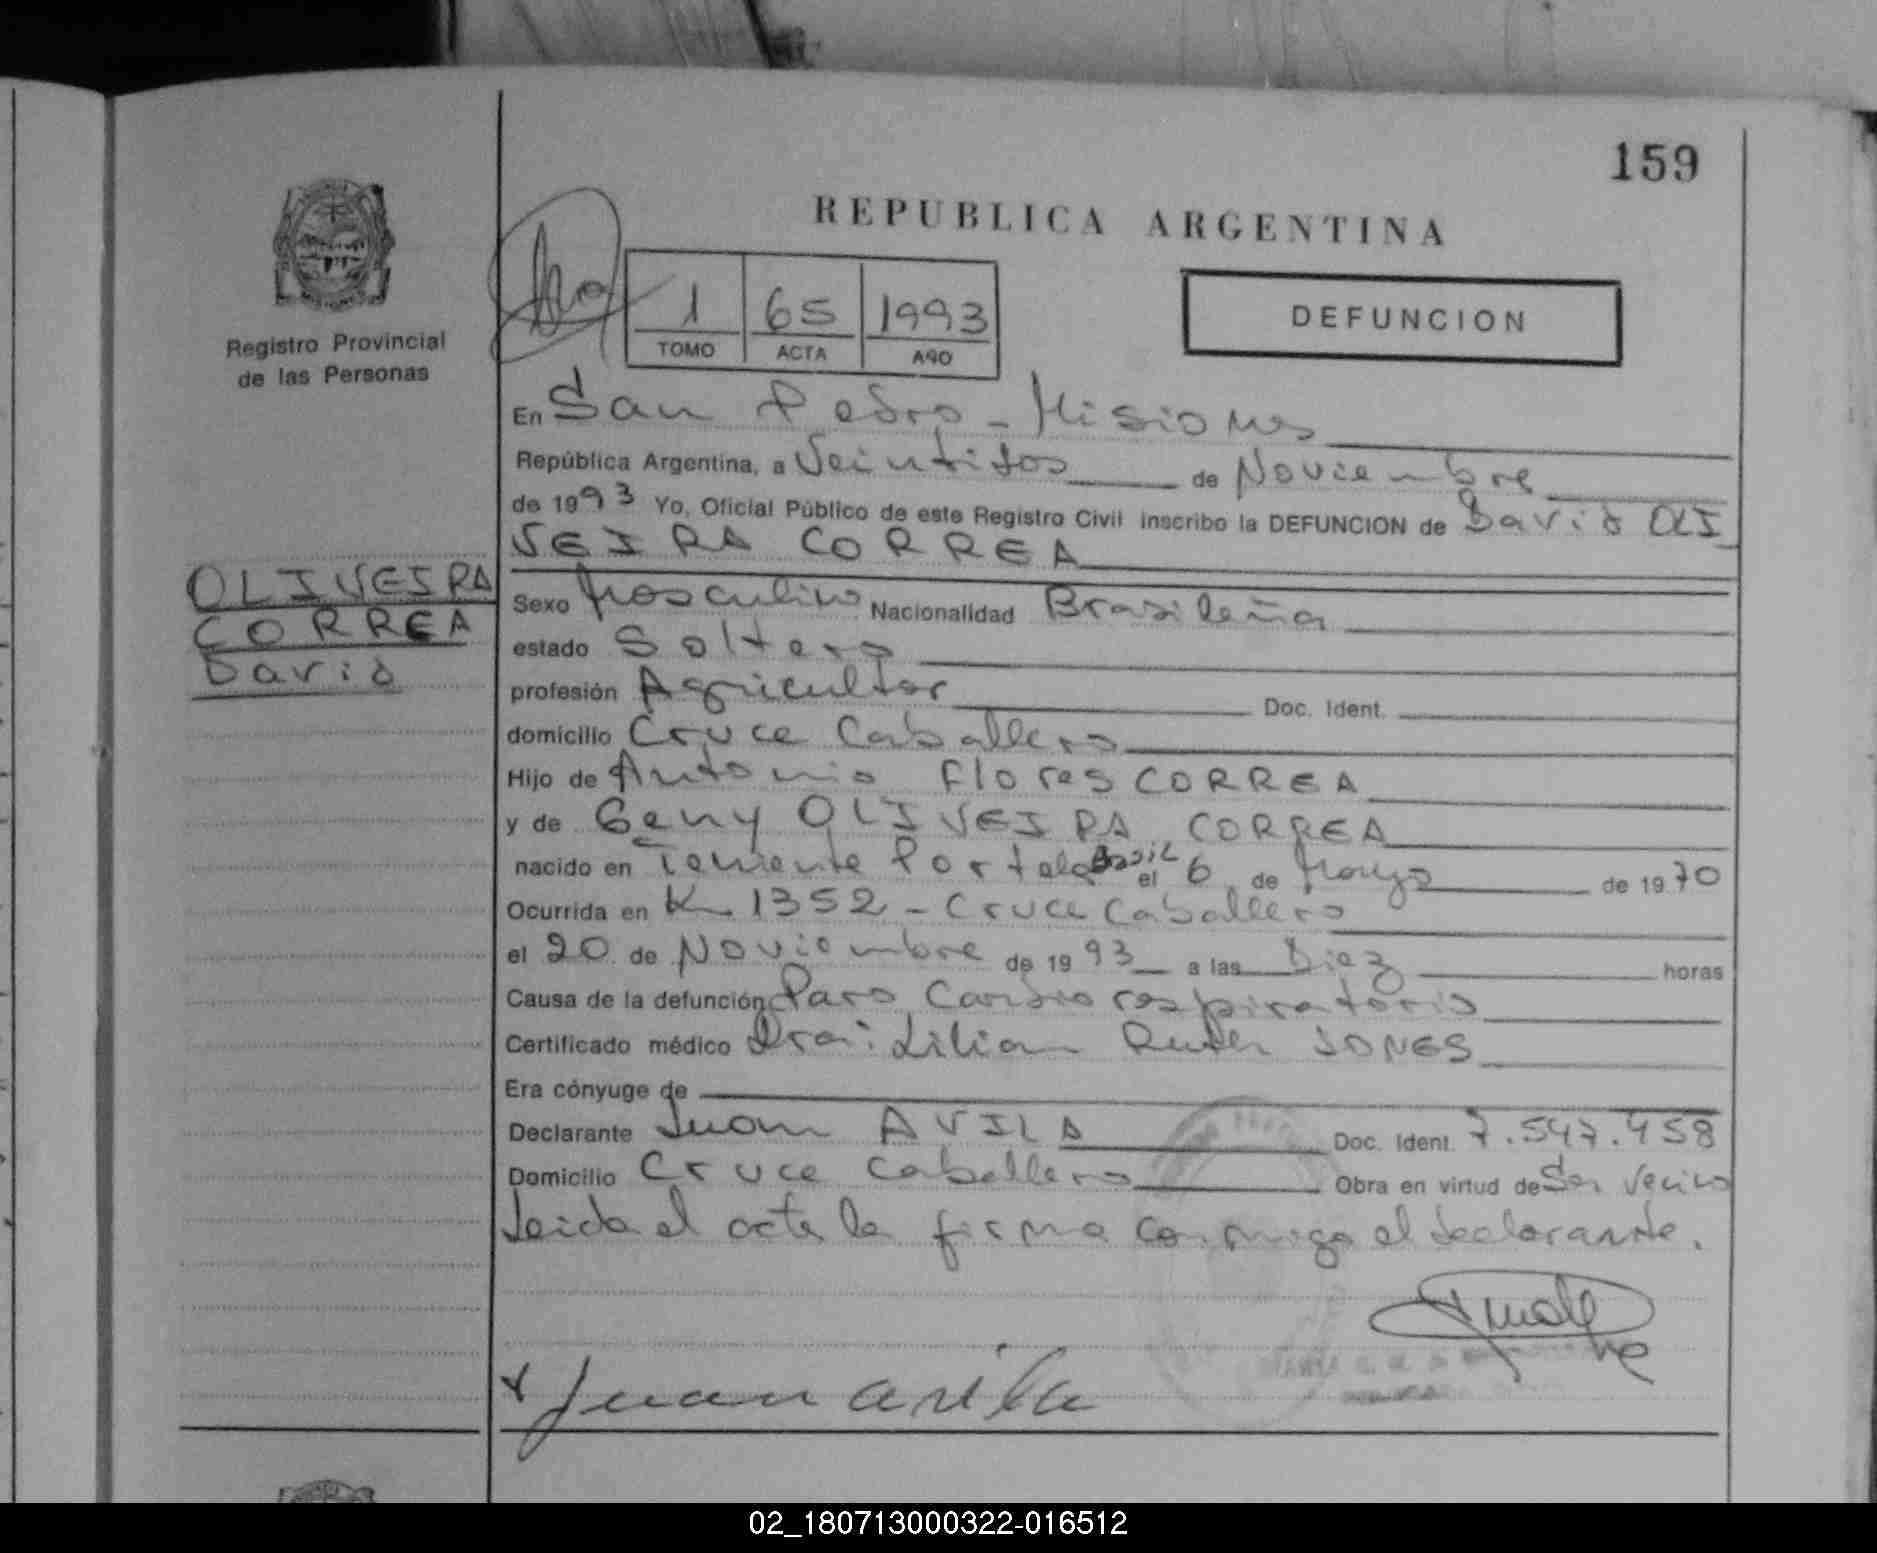 159
REPUBLICA ARGENTINA
Registro Provincial
de las Personas
1 65 1993
TOMO ACTA AÑO
DEFUNCION
En San Pedro - Misiones
República Argentina, a Veintitos de Noviembre
de 1993 Yo, Oficial Público de este Registro Civil inscribo la DEFUNCION de David OLI
VEIRA CORREA
OLIVEIRA
CORREA
David
Sexo Masculino Nacionalidad Brasileña
estado Soltero
profesión Agricultor Doc. Ident.
domicilio Cruce Caballero
Hijo de Antonio Flores CORREA
y de Geny OLIVEIRA CORREA
nacido en Teniente Portela Brasil el 6 de Mayo de 1970
Ocurrida en K. 1352 - Cruce Caballero
el 20 de Noviembre de 1993 a las Diez horas
Causa de la defunción Paro Cardio respiratorio
Certificado médico Dra: Lilian Ruth JONES
Era cónyuge de
Declarante Juan AVILA Doc. Ident. 7.547.458
Domicilio Cruce Caballero Obra en virtud de Ser vecino
Leida el acta la firma conmigo el declarante.
Juan avila
02_180713000322-016512